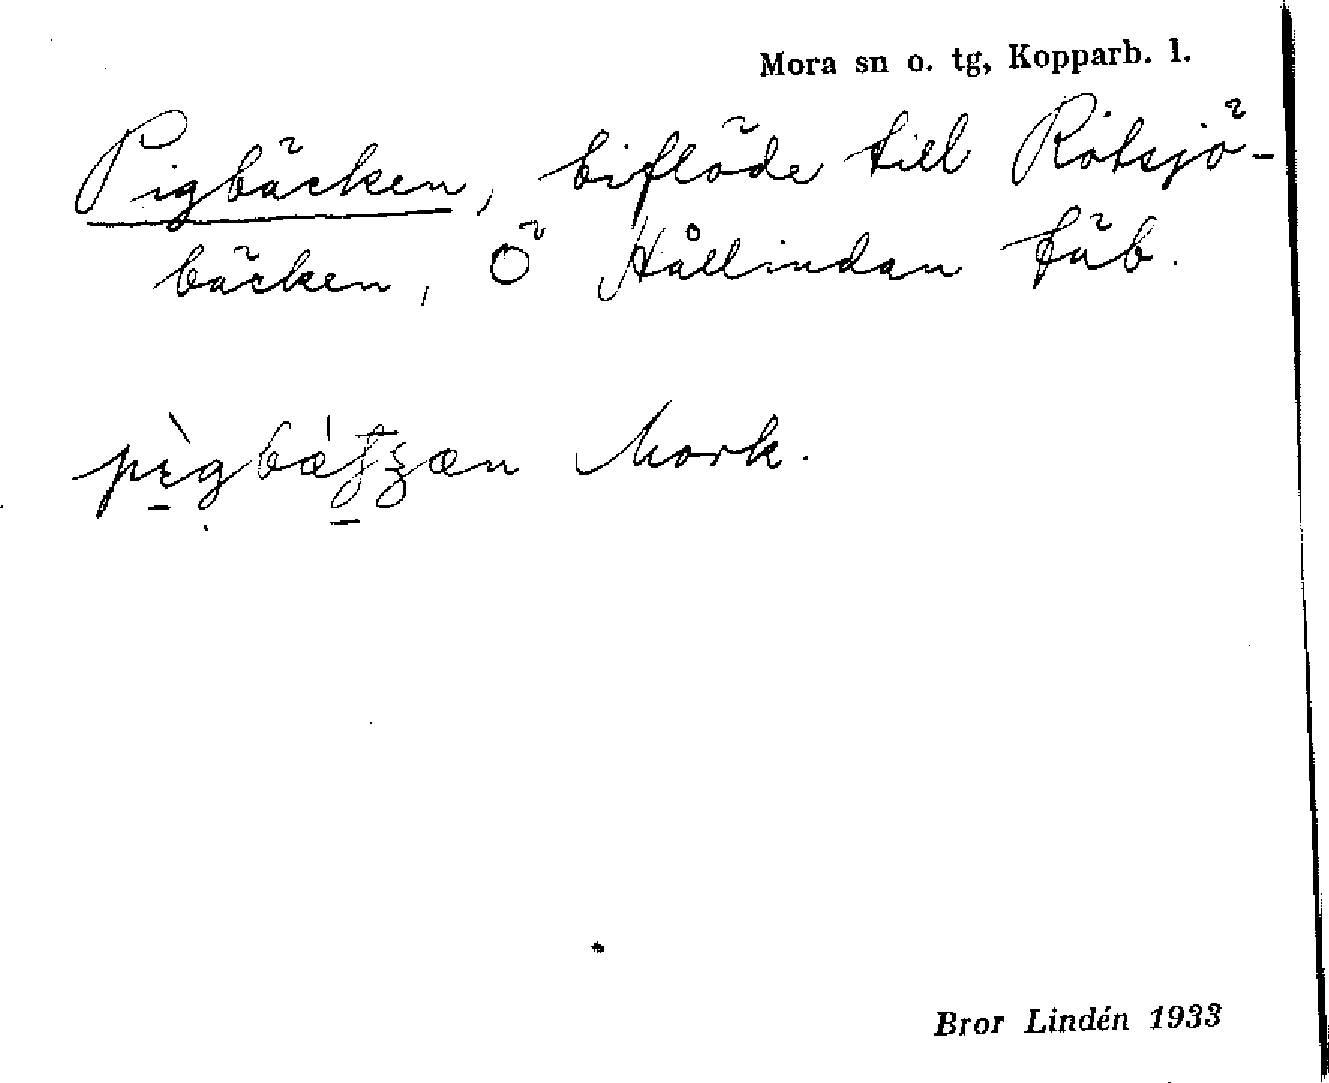 Mora sn o. tg, Kopparb. l.
Pigbäcken, biflöde till Rötsjö-
bäcken, Ö Hållindan fäb.
Mork.
Bror Lindén 1933